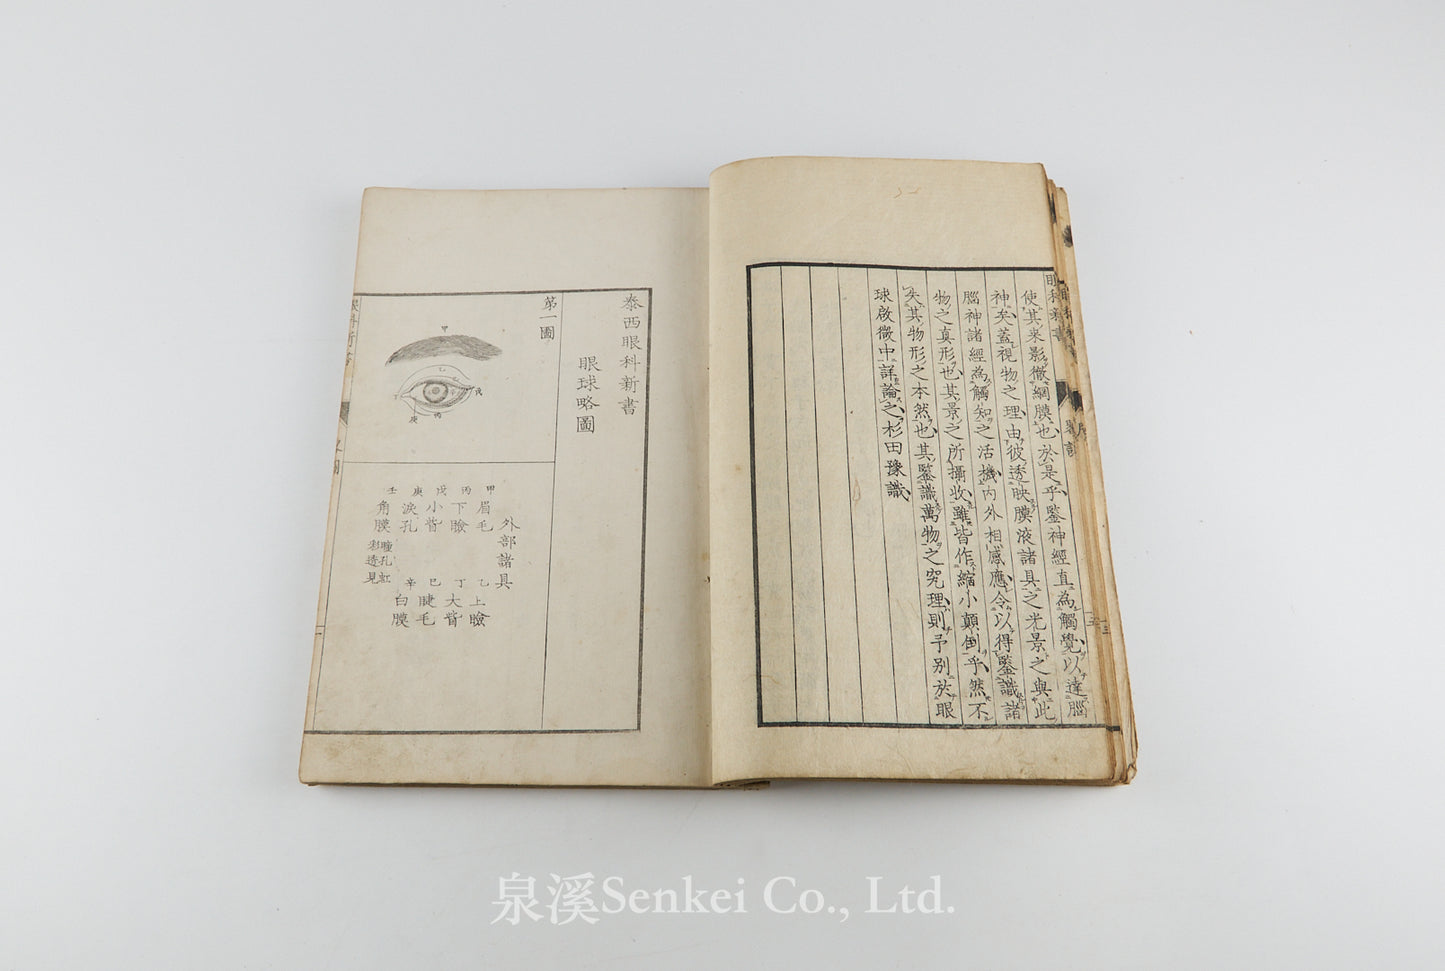 眼科新書
使其来影微網膜也於是乎鑒神經直為觸覺以達腦
神矣蓋視物之理由彼透映膜液諸具之光景之與此
腦神諸經為觸知之活機內外相感應令以得鑒識諸
物之真形也其景之所攝收雖皆作縮小顛倒乎然不
失其物形之本然也其鑒識萬物之究理則予別於眼
球啟微中詳論之杉田豫識
泰西眼科新書
眼球略圖
第一圖
甲
乙
戊
丁
丙
庚
外部諸具
甲 眉毛
丙 下瞼
戊 小眥
庚 淚孔
壬 角膜
瞳孔虹
彩透見
乙 上瞼
丁 大眥
巳 睫毛
辛 白膜
泉溪Senkei Co., Ltd.